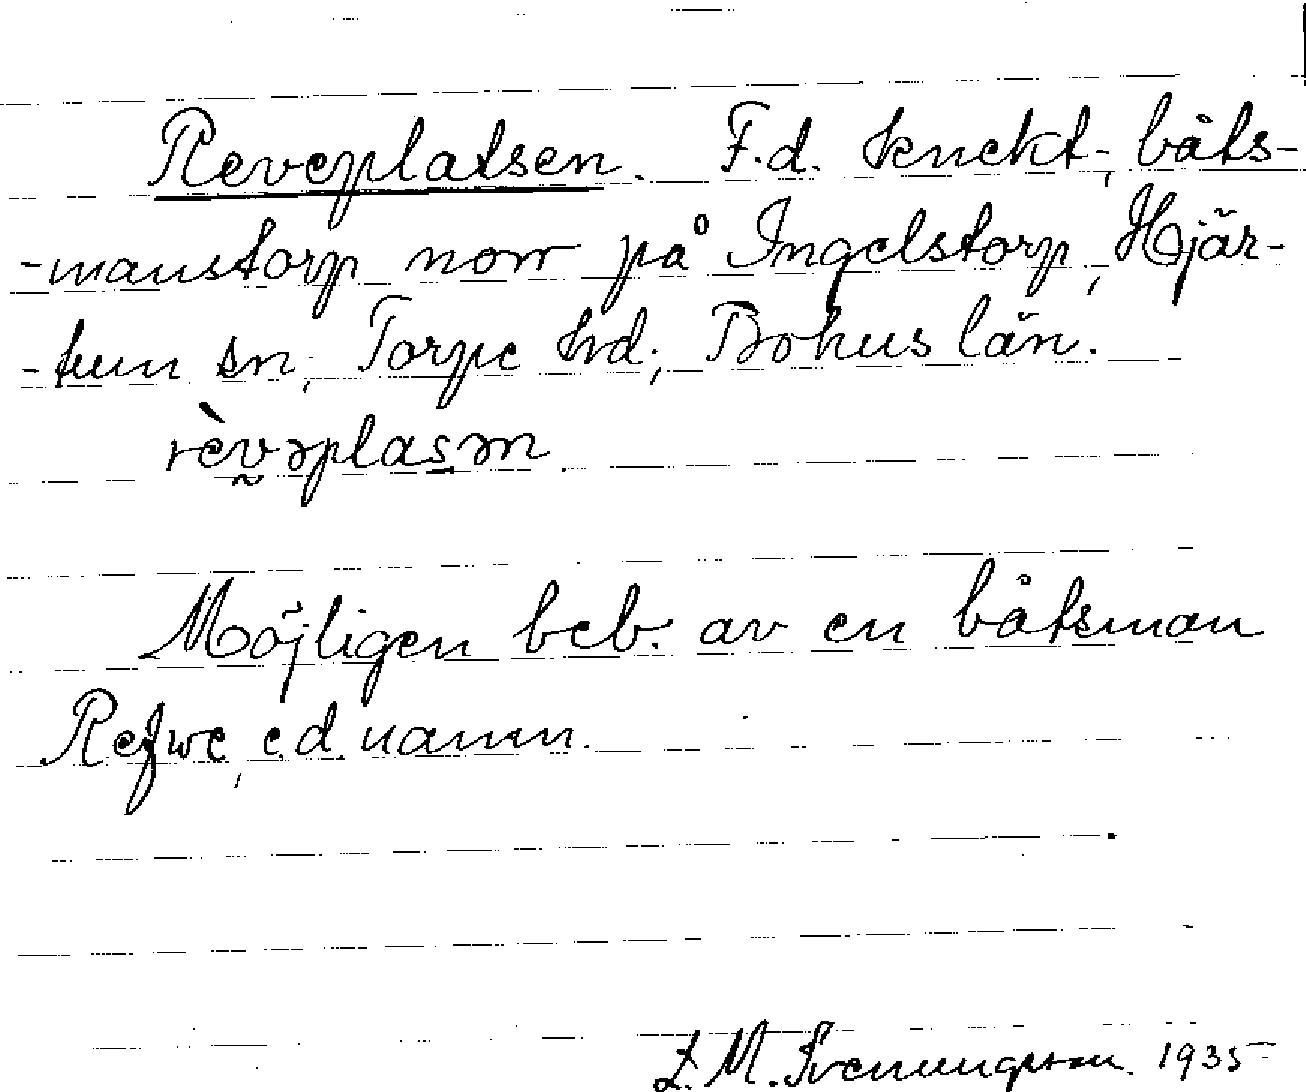 Reveplatsen. F.d. knekt-, båts-
-manstorp norr på Ingelstorp, Hjär-
-tum sn, Torpe hd, Bohus län.
rèvəplasən
Möjligen beb. av en båtsman
Refwe, e.d. namn.
L. M. Svenungsson. 1935